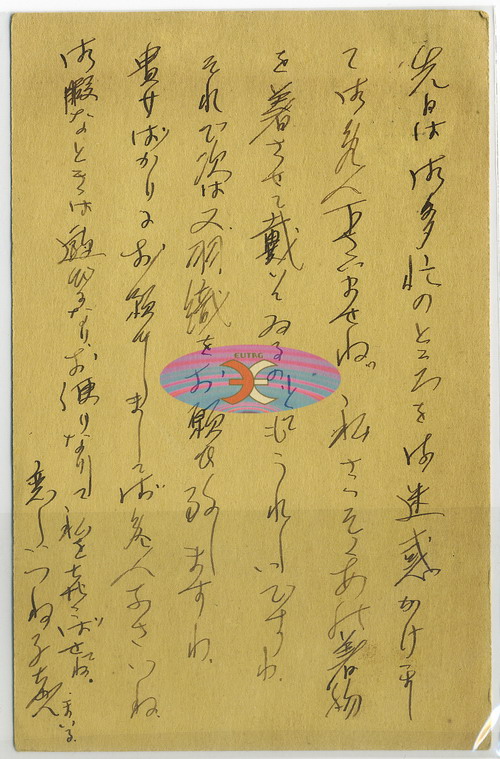 先日は御多忙のところを御迷惑かけまし
て御免下さいませね 私さっそくあの着物
を着させて戴いてゐるの とてもうれしいですわ
それで次は又羽織をお願ひ致しますわ
貴女ばかりにお願ひしまして御免なさいね
御暇なときは遊びなりお便りなりで私を喜ばせてね
EUTAG